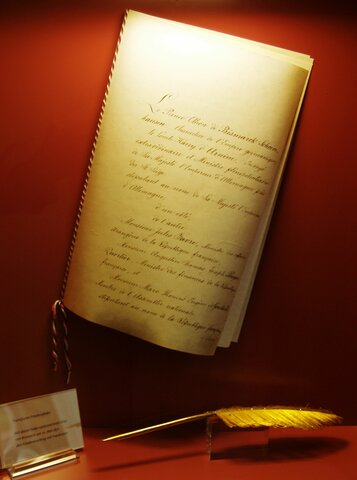 Le Prince Othon de Bismarck-Schön-
hausen, Chancelier de l'Empire germanique,
le Comte Harry d'Arnim, Envoyé
extraordinaire et Ministre plénipotentiaire
de Sa Majesté l'Empereur d'Allemagne près
du St Siège,
stipulant au nom de Sa Majesté l'Empereur
d'Allemagne,
d'un côté,
de l'autre
Monsieur Jules Favre, Ministre des affaires
étrangères de la République française,
Monsieur Augustin Thomas Joseph Pouyer-
Quertier, Ministre des finances de la République
française, et
Monsieur Marc Thomas Eugène de Goulard,
Membre de l'Assemblée nationale,
stipulant au nom de la République française,